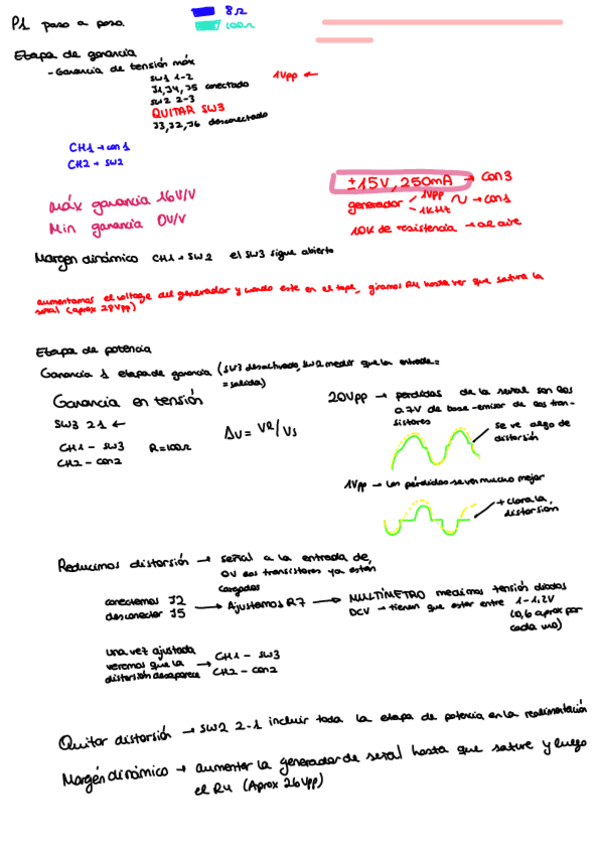 P1 paso a paso.
8Ω
100Ω
Etapa de ganancia
- Ganancia de tensión máx
SW1 1-2
J1, J4, J5 conectado
SW2 2-3
QUITAR SW3
J3, J2, J6 desconectado
1Vpp ←
CH1 → con1
CH2 → SW2
Máx ganancia 16V/V
Min ganancia 0V/V
±15V, 250mA → con3
generador 1Vpp ~ → con1
1KHz
10K de resistencia → al aire
Margen dinámico CH1 → SW2 el SW3 sigue abierto
aumentamos el voltage del generador y cuando este en el tope, giramos R4 hasta ver que satura la
señal (aprox 28Vpp)
Etapa de potencia
Ganancia 1 etapa de ganancia (SW3 desactivado, SW2 medir que la entrada =
= salida)
Ganancia en tensión
SW3 21 ←
CH1 - SW3 R=100Ω
CH2 - con2
Δv = VR/Vs
20Vpp → perdidas de la señal son los
0.7V de base-emisor de los tran-
sistores
se ve algo de
distorsión
1Vpp → las pérdidas se ven mucho mejor
+ clara la
distorsion
Reducimos distorsión → señal a la entrada de
0V los transistores ya estén
cargados
conectamos J2
desconectar J5
→ Ajustamos R7 → MULTÍMETRO medimos tensión diodos
DCV → tienen que estar entre 1-1,2V
(0,6 aprox por
cada uno)
una vez ajustada
veremos que la
distorsión desaparece
→ CH1 - SW3
CH2 - con2
Quitar distorsión → SW2 2-1 incluir toda la etapa de potencia en la realimentación
Margén dinámico → aumentar la generador de señal hasta que sature y luego
el R4 (Aprox 26Vpp)